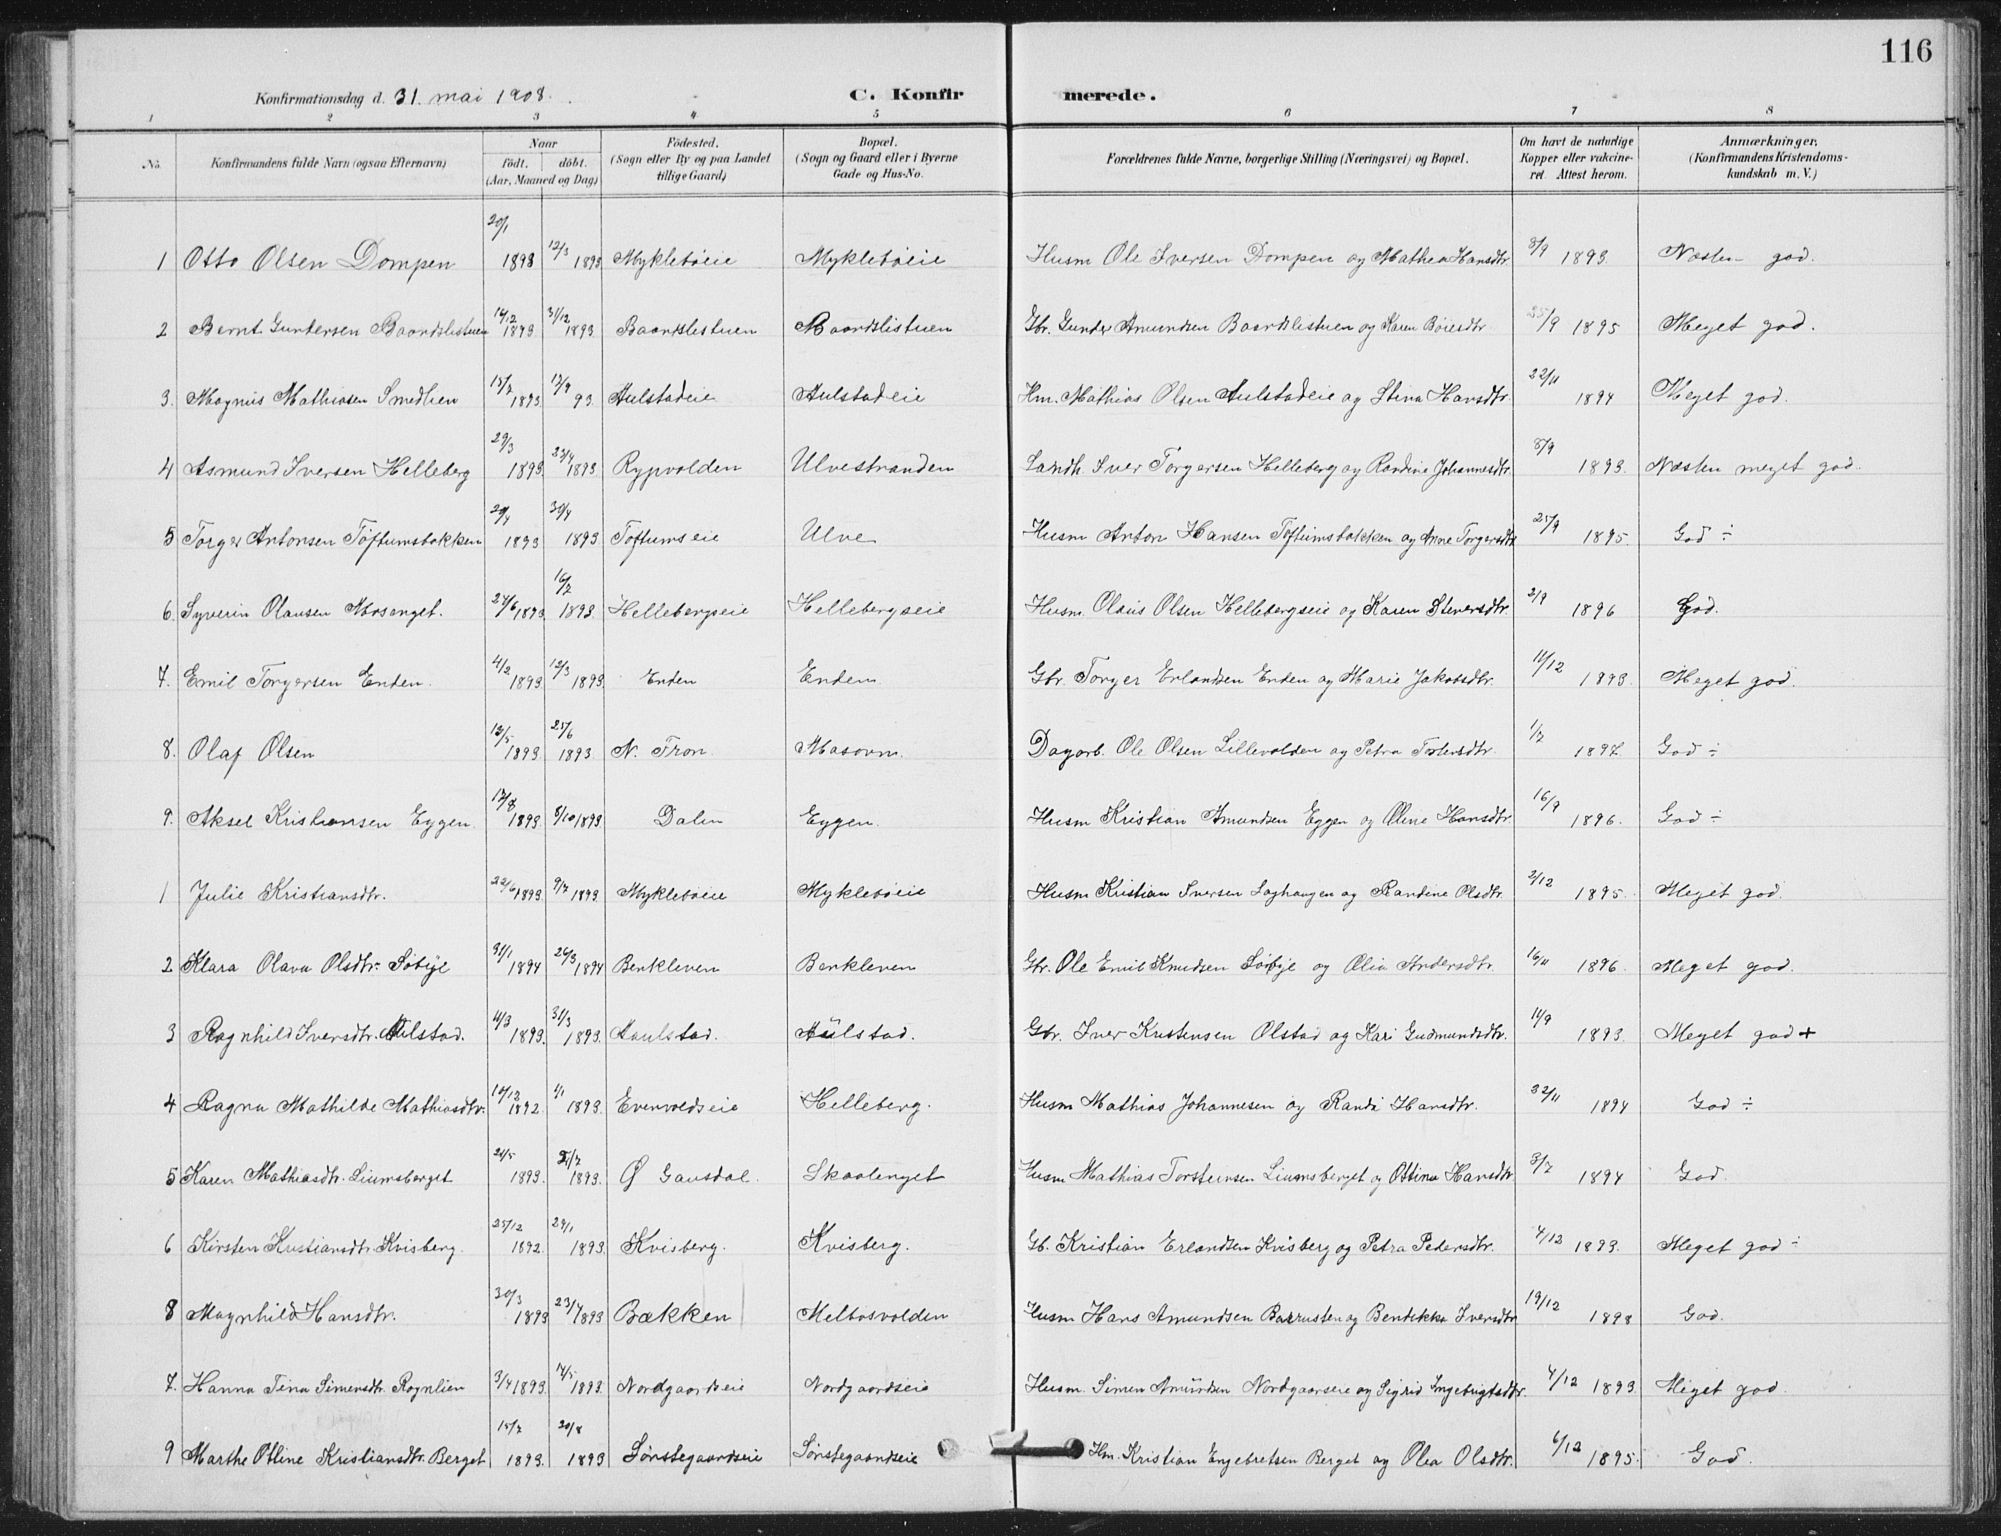 116
Konfirmationsdag d. 31. mai 1908. C. Konfirmerede.
1 2 3 4 5 6 7 8
No. Konfirmandens fulde Navn (ogsaa Efternavn) Naar födt. döbt. (Aar, Maaned og Dag) Födested. (Sogn eller By og paa Landet tillige Gaard) Bopæl. (Sogn og Gaard eller i Byerne Gade og Hus-No. Forældrenes fulde Navne, borgerlige Stilling (Næringsvei) og Bopæl. Om havt de naturlige Kopper eller vakcineret. Attest herom. Anmærkninger. (Konfirmandens Kristendomskundskab m. V.)
1 Otto Olsen Dompen 20/1 1893 12/3 1893 Mykleböeie Mykleböeie Husm Ole Iversen Dompen og Mathea Hansdtr. 8/9 1893. Næsten god.
2 Bernt Gundersen Baardslistuen 14/12 1893 31/12 1893. Baardslistuen Baardslistuen Gbr. Gunder Amundsen Baardslistuen og Karen Böiesdtr 25/9 1895 Meget god.
3. Magnus Mathiasen Smedlien 15/7 1893. 17/9 93. Aulstadeie Aulstadeie Hm. Mathias Olsen Aulstadeie og Stina Hansdtr 22/11 1894 Meget god.
4 Asmund Iversen Helleberg 29/3 1893. 23/4 1893. Rypvolden Ulvestranden Landh. Iver Torgersen Helleberg og Randine Johannesdtr. 8/9 1893. Næsten meget god.
5 Torger Antonsen Töftumsbakken 20/4 1893 30/4 1893. Toftumseie Ulve Husm Anton Hansen Töftumsbakken og Anne Torgersdtr 25/9 1895. God ÷
6. Syverin Olausen Mosenget. 24/6 1893. 16/7 1893. Hellebergseie Hellebergseie Husm. Olaus Olsen Hellebergseie og Karen Steversdtr. 2/9 1896 God.
7. Emil Torgersen Enden. 4/2 1893. 12/3 1893. Enden Enden Gbr. Torger Erlandsen Enden og Marie Jakobsdtr. 11/12 1893. Meget god.
8. Olaf Olsen 12/5 1893. 25/6 1893. N. Fron. Masovn. Dagarb. Ole Olsen Lillevolden og Petra 1/7 1897. God ÷
9. Aksel Kristiansen Eggen. 17/8 1893. 8/10 1893. Dalen Eggen. Husm Kristian Amundsen Eggen og Oline Hansdtr. 16/9 1896. God ÷
1 Julie Kristiansdtr. 22/6 1893. 9/7 1893. Mykleböeie Mykleböeie Husm Kristian Iversen Laghaugen og Randine Olsdtr. 2/12 1895. Meget god.
2 Klara Olava Olsdtr. Söbye 31/1 1894 26/3 1894 Benkleven Benkleven Gbr. Ole Emil Knudsen Söbye og Olia Andersdtr. 16/11 1896. Meget god.
3 Ragnhild Iversdtr. Aulstad. 4/3 1893. 31/3 1893. Aaulstad. Aulstad. Gbr. Iver Kristensen Olstad og Kari Gudmundsdtr. 11/9 1893. Meget god +
4 Ragna Mathilde Mathiasdtr. 10/12 1892. 1/1 1893. Evenvoldseie Helleberg. Husm Mathias Johannesen og Randi Hansdtr. 22/11 1894 God ÷
5 Karen Mathiasdtr. Liumsberget 21/5 1893. /7 1893. Ø Gausdal. Skaalenget Husm Mathias Torsteinsen Liumsberget og Ottina Hansdtr. 3/7 1894 God.
6 Kirsten Kristiansdtr. Kvisberg. 25/12 1892. 29/1 1893. Kvisberg. Kvisberg. Gb. Kristian Erlandsen Kvisberg og Petra Pedersdtr. 4/12 1893. Meget god ÷
8 Magnhild Hansdtr. 30/3 1893 23/4 1893 Bækken Melbosvolden Husm Hans Amundsen Barrusten og Bendikka Iversdtr 19/12 1898 God.
7. Hanna Tina Simensdtr. Rognlien 3/4 1893. 14/5 1893. Nordgaardseie Nordgaardseie Husm. Simen Amundsen Nordgaarseie og Sigrid Ingebrigtsdtr. 4/12 1893. Meget god.
9 Marthe Otline Kristiansdtr. Berget 15/7 1893. 20/8 1893 Sörstegaardseie Sörstegaardseie Hm. Kristian Engebretsen Berget og Olea Olsdtr. 6/12 1895. God.